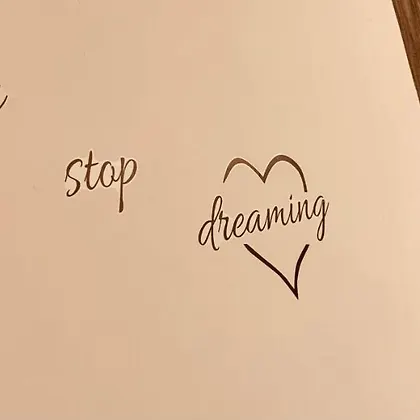 stop
dreaming